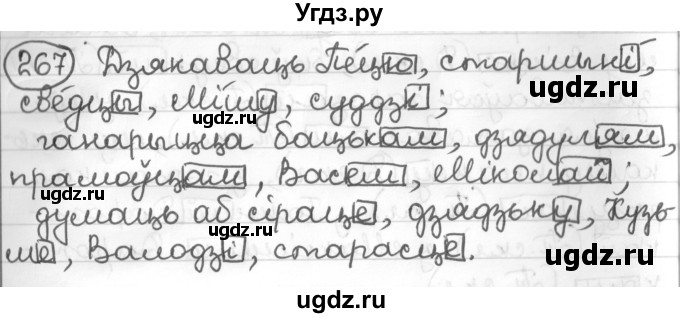 Угдз.ру
267 Дзякаваць Пе́цю, старшыні́,
све́дцы, Мі́шу, суддзі́;
ганарыцца бацькам, дзядулям,
прамоўцам, Васем, Міколай;
думаць аб сіраце, дзядзьку, Кузь-
ме, Валодзі, старасце.
ugdz.ru
ugdz.ru
ugdz.ru
ugdz.ru
ugdz.ru
ugdz.ru
ugdz.ru
ugdz.ru
ugdz.ru